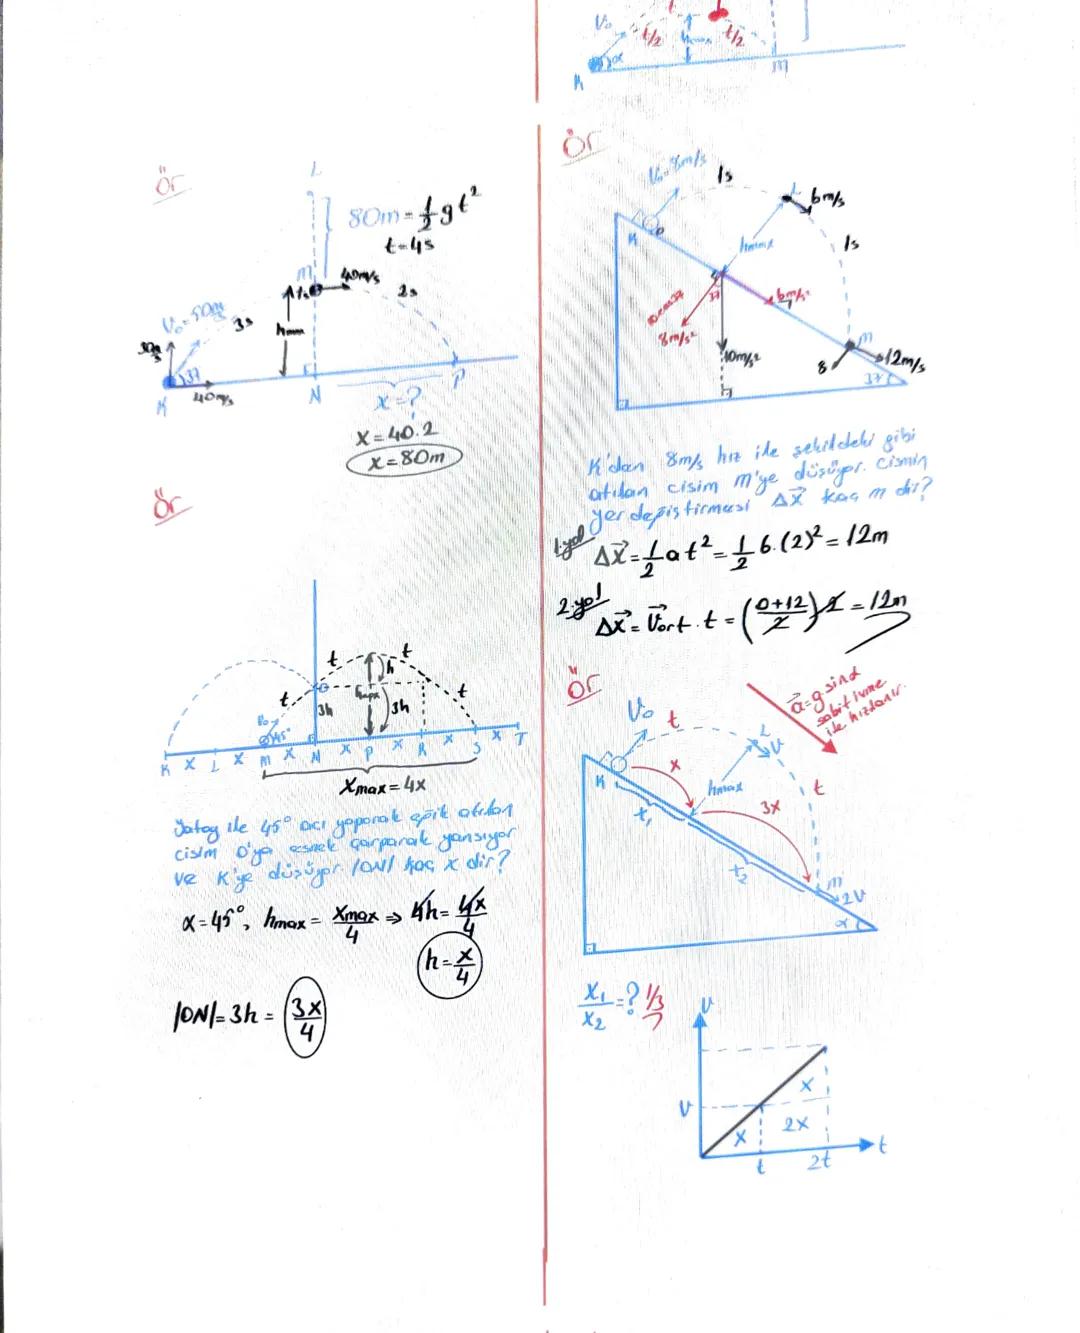 Ör
L
80m = 1/2 g t²
t=4s
M
1s
40m/s
2s
V₀=50m/s
3s
30m/s
37
K
40m/s
N
P
x=?
x=40.2
x=80m
Ör
t
t
h
t
O
3h
3h
t
V₀
45°
K x L x M x N x P x R x S x T
Xmax=4x
Yatay ile 45° açı yaparak eğik atılan
cisim O'ya esnek çarparak yansıyor
ve K'ye düşüyor |ON| kaç x dir?
α=45°, hmax = Xmax/4 ⇒ 4h = 4x/4
h = x/4
|ON| = 3h = 3x/4
V₀
t/2
t/2
α
K
M
Ör
V₀=8m/s
1s
L
6m/s
K
hmax
1s
37
6m/s²
8m/s²
10m/s²
M
8
12m/s
37
K'dan 8m/s hız ile şekildeki gibi
atılan cisim M'ye düşüyor. Cismin
yer değiştirmesi Δx⃗ kaç m dir?
1.yol
Δx⃗ = 1/2 a t² = 1/2 6.(2)² = 12m
2.yol
Δx⃗ = V⃗ort . t = (0+12/2) 2 = 12m
Ör
a⃗=g sinα
sabit ivme
ile hızlanır.
V₀
t
L
V
K
x
hmax
t
3x
M
2V
α
X₁/X₂ = ? 1/3
V
V
x
x
2x
t
2t
t